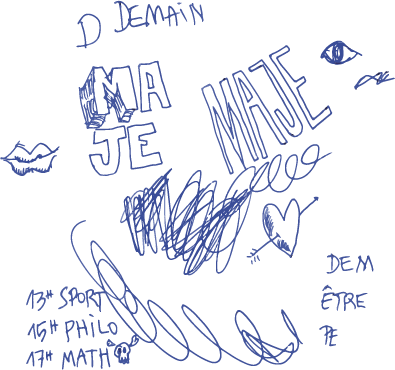 D DEMAIN
MA
JE
MAJE
13H SPORT
15H PHILO
17H MATH
DEM
ÊTRE
PE